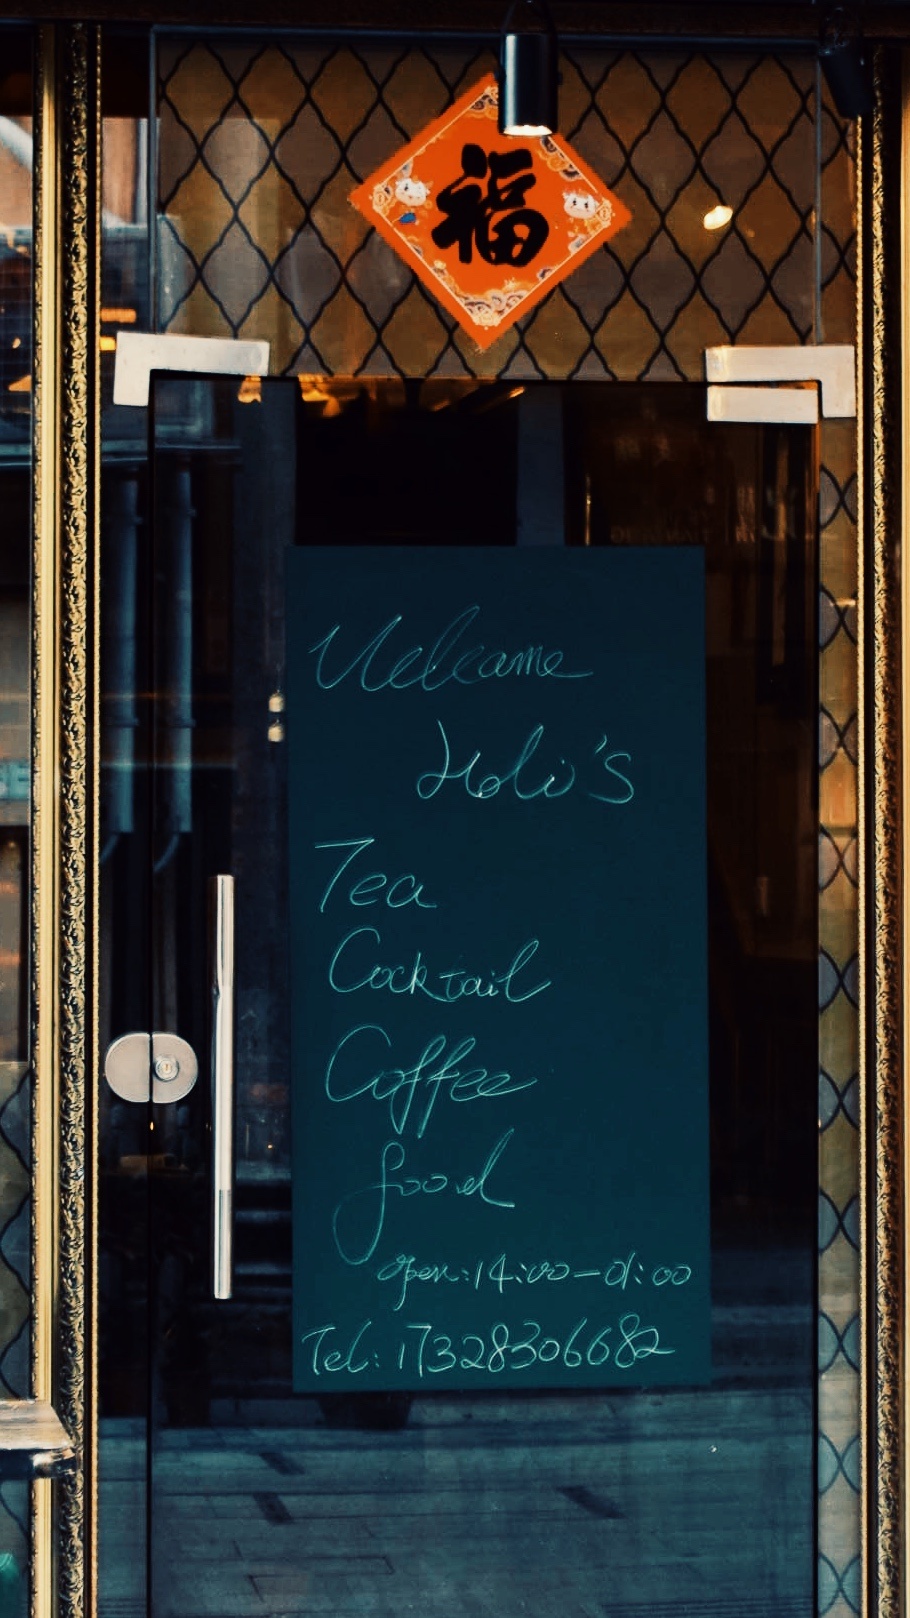 福
Welcome
Holo's
Tea
Cocktail
Coffee
food
open:14:00-01:00
Tel:17328306682